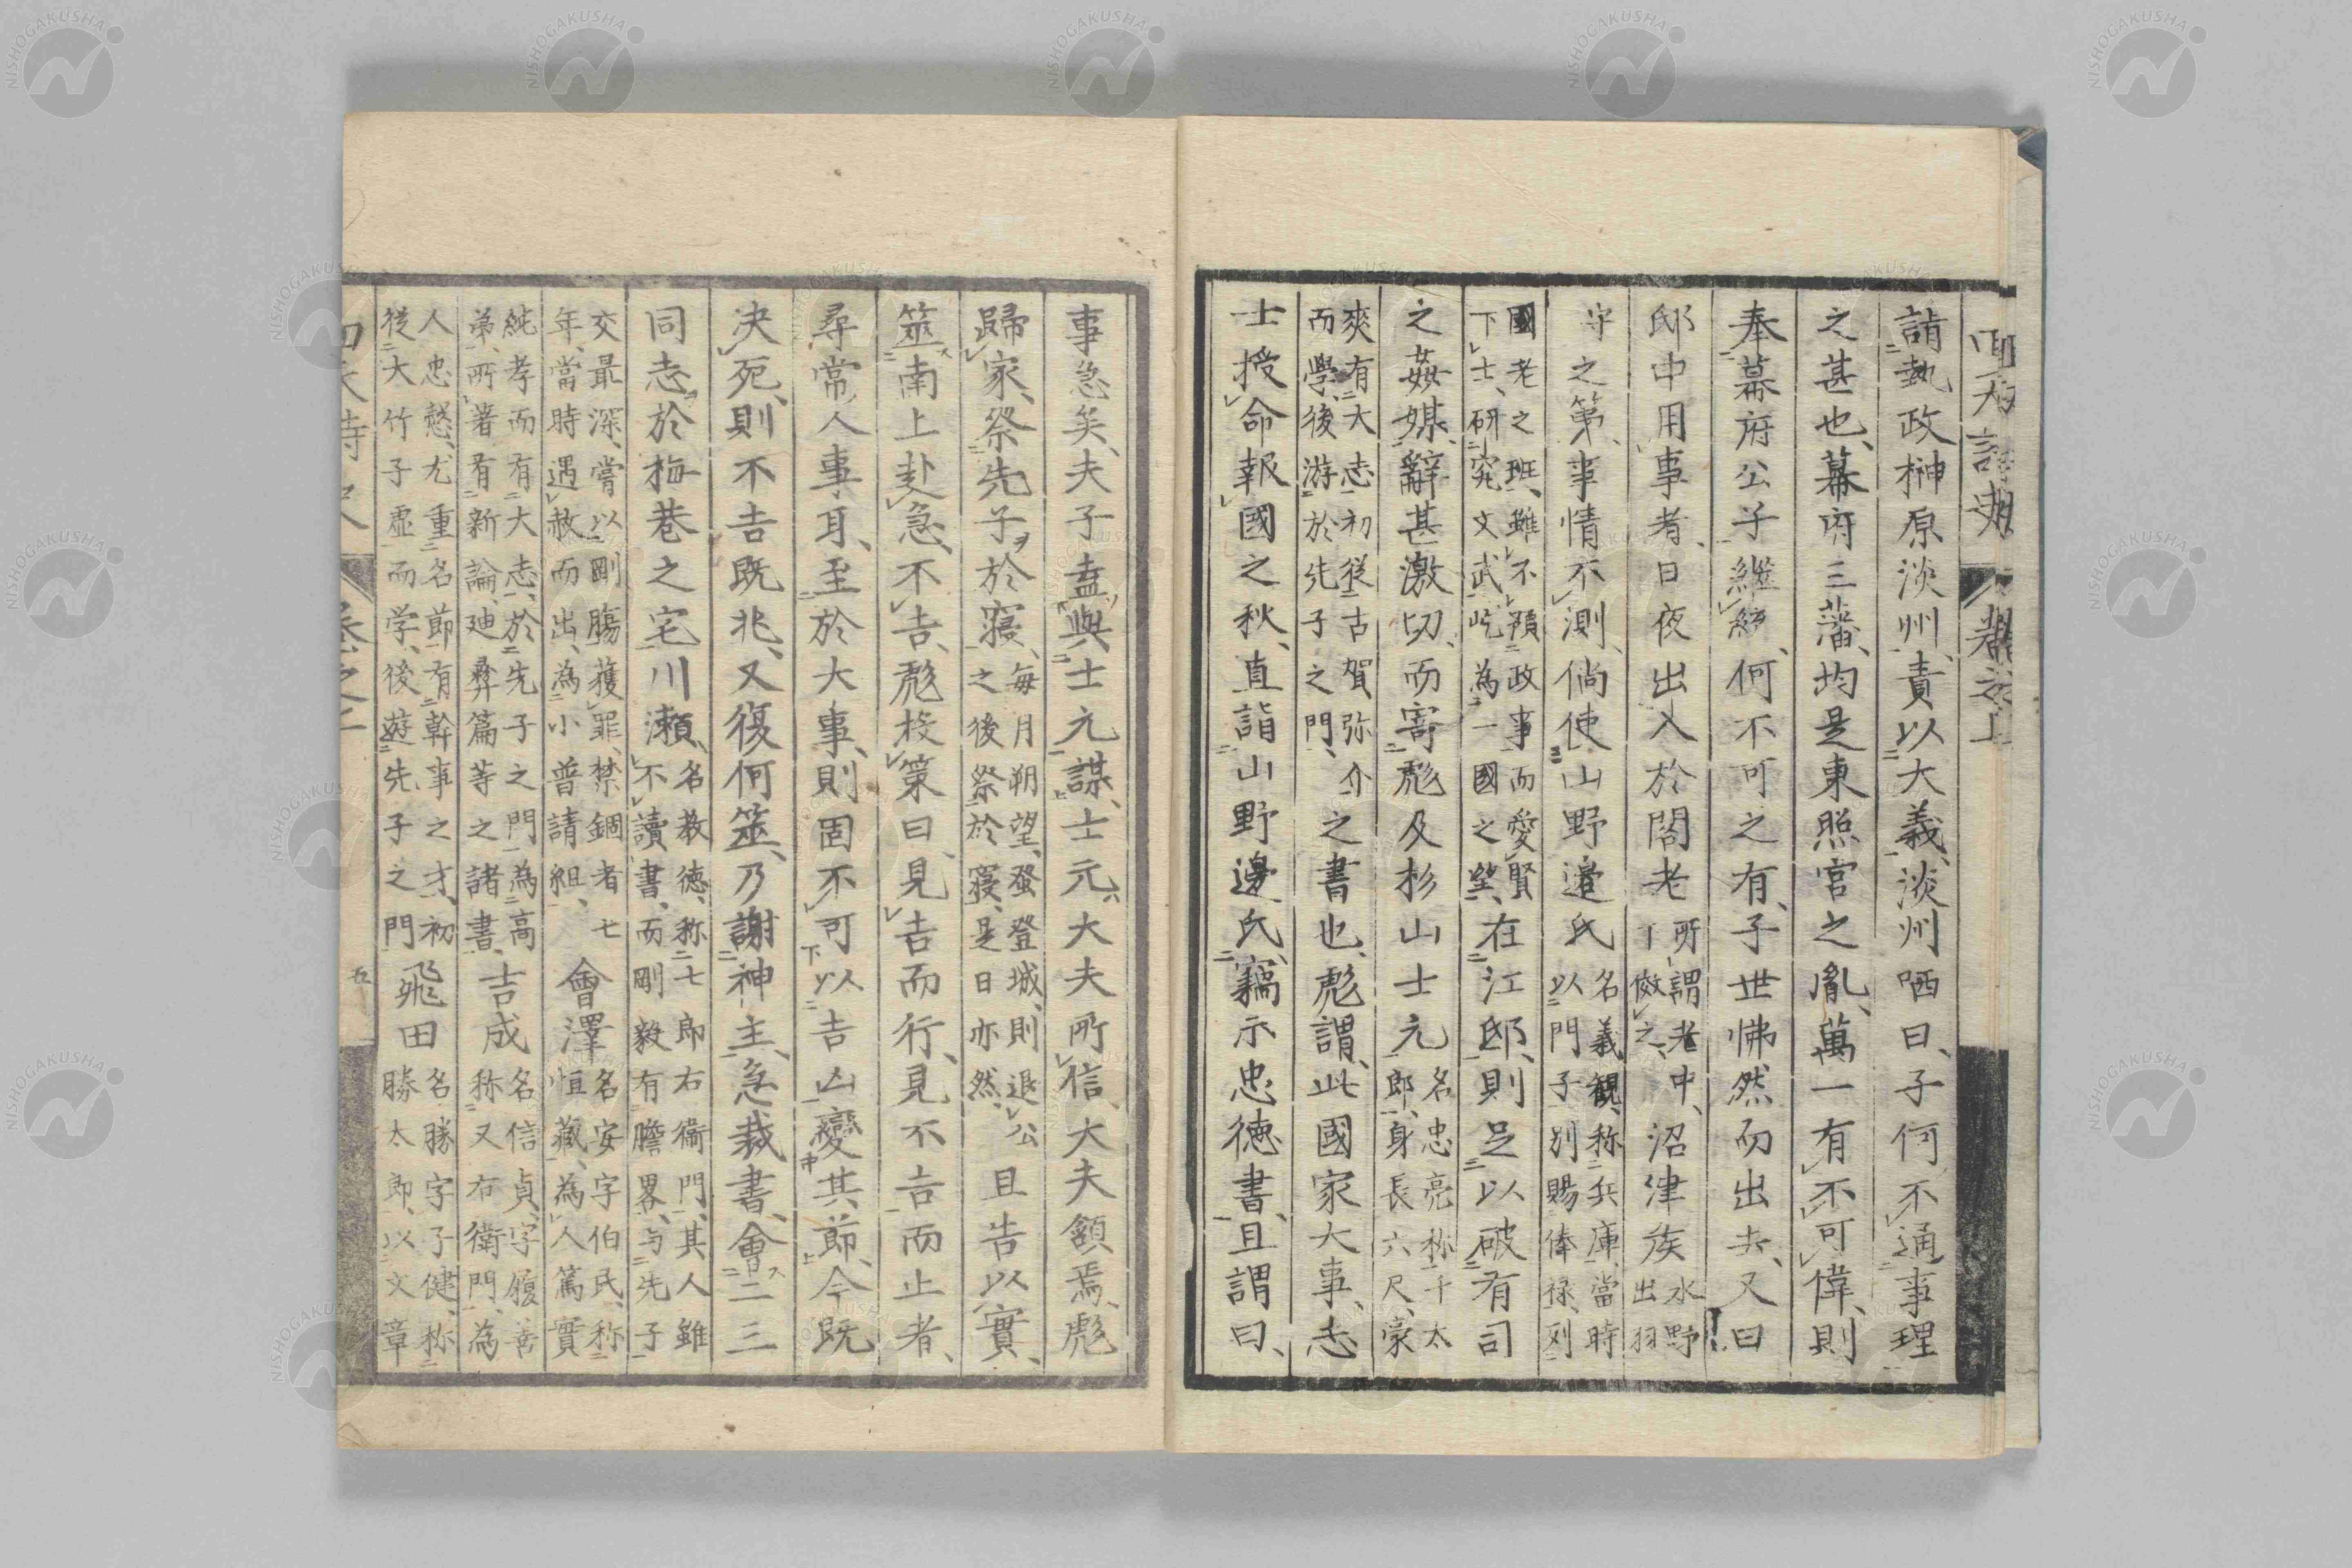 回天詩史 卷之上
詣執政榊原淡州、責以大義、淡州哂曰、子何不通事理
之甚也、幕府三藩、均是東照宮之胤、萬一有不可偉、則
奉幕府公子繼統、何不可之有、子世怫然而出去、又曰
邸中用事者、日夜出入於閣老所謂老中、下傚之、沼津侯水野出羽
守之第、事情不測、倘使山野邉氏名義観、称兵庫、當時以門子別賜俸禄、列
國老之班、雖不預政事而愛賢下士、研究文武、屹為一國之望、在江邸、則足以破有司
之姦媒、辭甚激切、而寄彪及杉山士元名忠亮称千太郎、身長六尺、豪
爽有大志初從古賀弥介而學、後游於先子之門、之書也、彪謂、此國家大事、志
士授命報國之秋、直詣山野邊氏、竊示忠徳書、且謂曰、
事急矣、夫子盍與士元謀、士元、大夫所信、大夫頷焉、彪
歸家、祭先子於寢、毎月朔望、發登城、則退公之後祭於寢、是日亦然、且告以實、
筮南上赴急、不吉、彪投策曰、見吉而行、見不吉而止者、
尋常人事耳、至於大事、則固不可以吉凶變其節、今既
决死、則不吉既兆、又復何筮、乃謝神主、急裁書、會二三
同志於梅巷之宅川瀬、名教徳、称七郎右衞門、其人雖不讀書、而剛毅有膽畧、与先子
交最深、嘗以剛膓獲罪、禁錮者七年、當時遇赦而出、為小普請組、會澤名安字伯民、称恒藏、為人篤實
純孝而有大志、於先子之門為高弟、所著有新論、廸彝篇等之諸書、吉成名信貞、字履善称又右衛門、為
人忠愨、尤重名節有幹事之才、初從大竹子虚而学、後遊先子之門飛田名勝字子健、称勝太郎、以文章